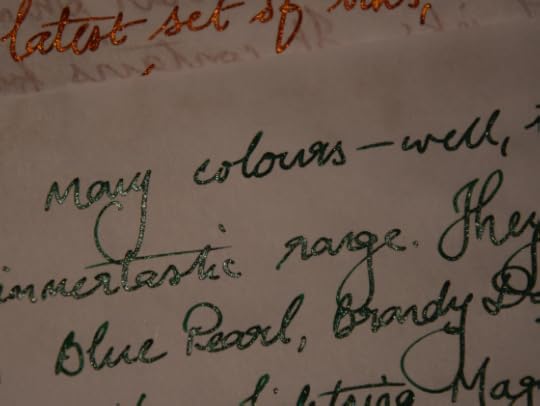 latest set of inks,
Many colours – well,
immertastic range. They
Blue Pearl, Brandy
Lightning